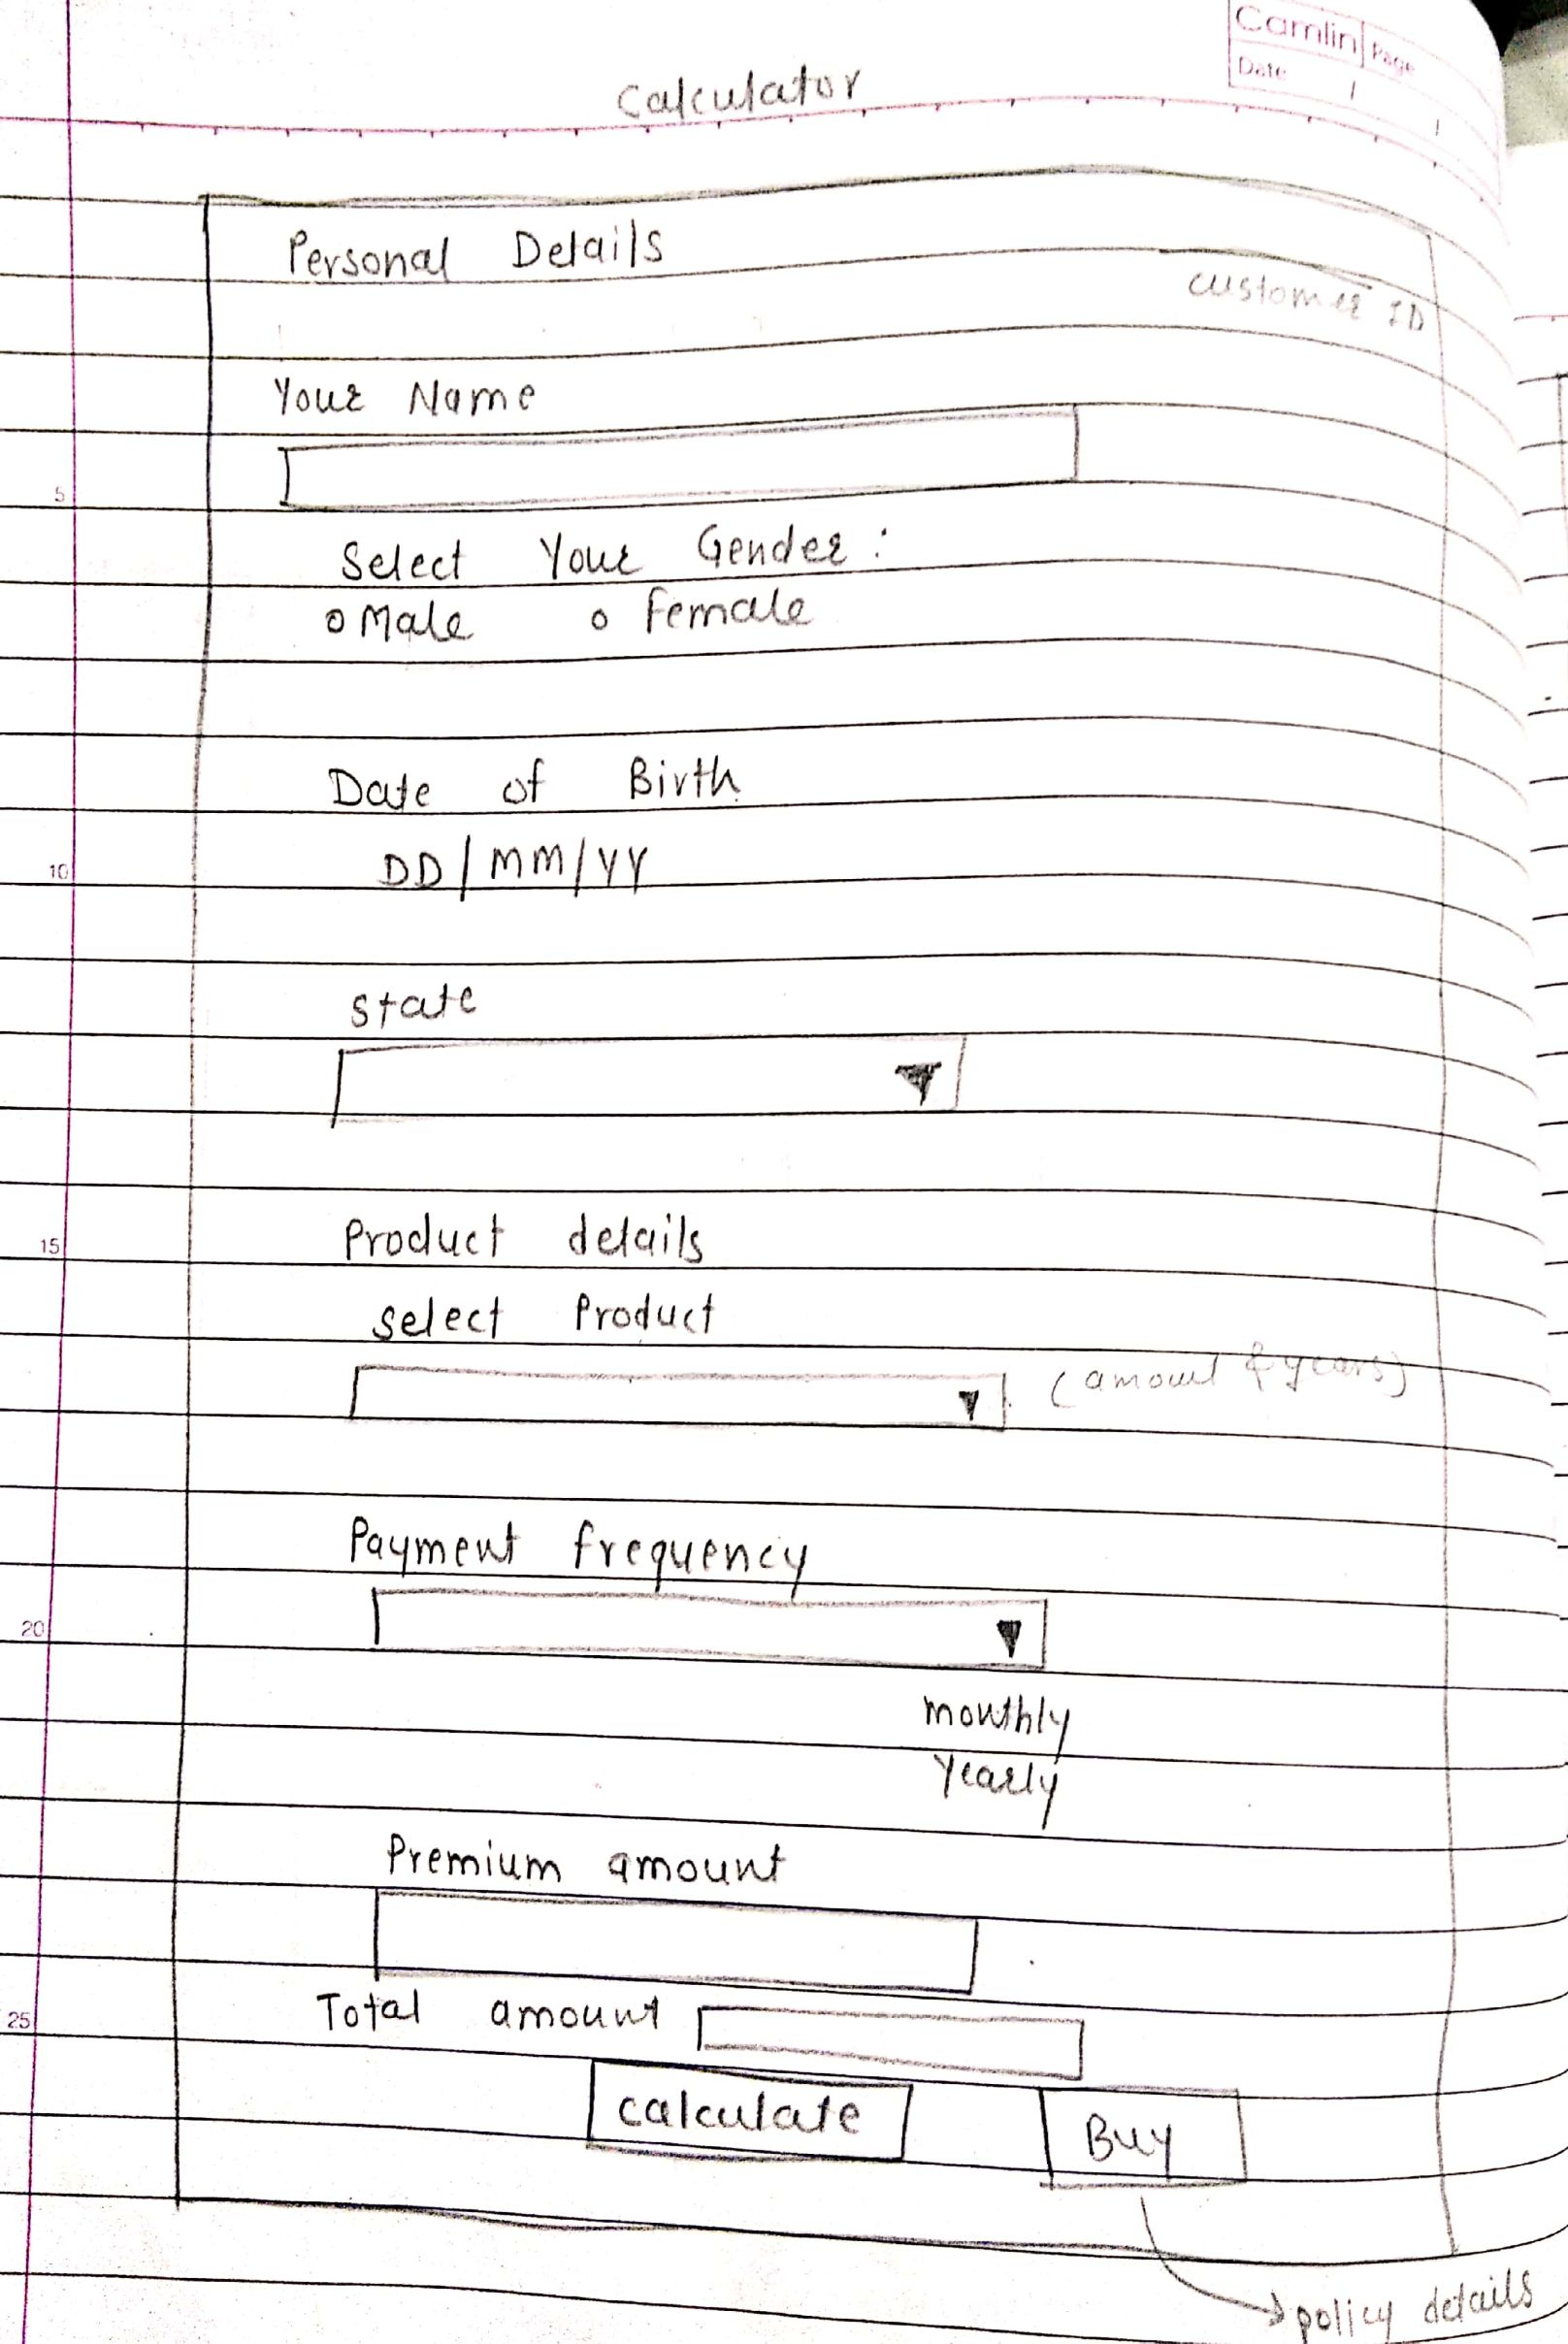 Camlin Page
Date
Calculator
Personal Details
customer ID
Your Name
5
Select Your Gender :
Male Female
Date of Birth
10
DD/MM/YY
state
15
Product details
select Product
(amount & years)
Payment frequency
20
monthly
Yearly
Premium amount
25
Total amount
calculate
Buy
policy details